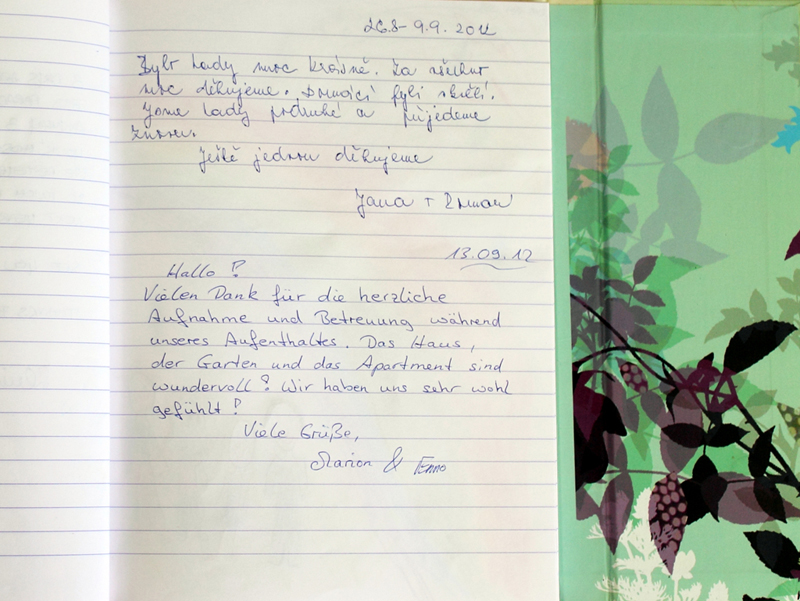 26.8 - 9.9. 2012
Bylo tady moc krásně. Za všechno
moc děkujeme. Domácí byli skvělí.
Jsme tady podruhé a přijedeme
znovu.
Ještě jednou děkujeme
Jana + Roman
13.09.12
Hallo!
Vielen Dank für die herzliche
Aufnahme und Betreuung während
unseres Aufenthaltes. Das Haus,
der Garten und das Apartment sind
wundervoll! Wir haben uns sehr wohl
gefühlt!
Viele Grüße,
Marion & Enno